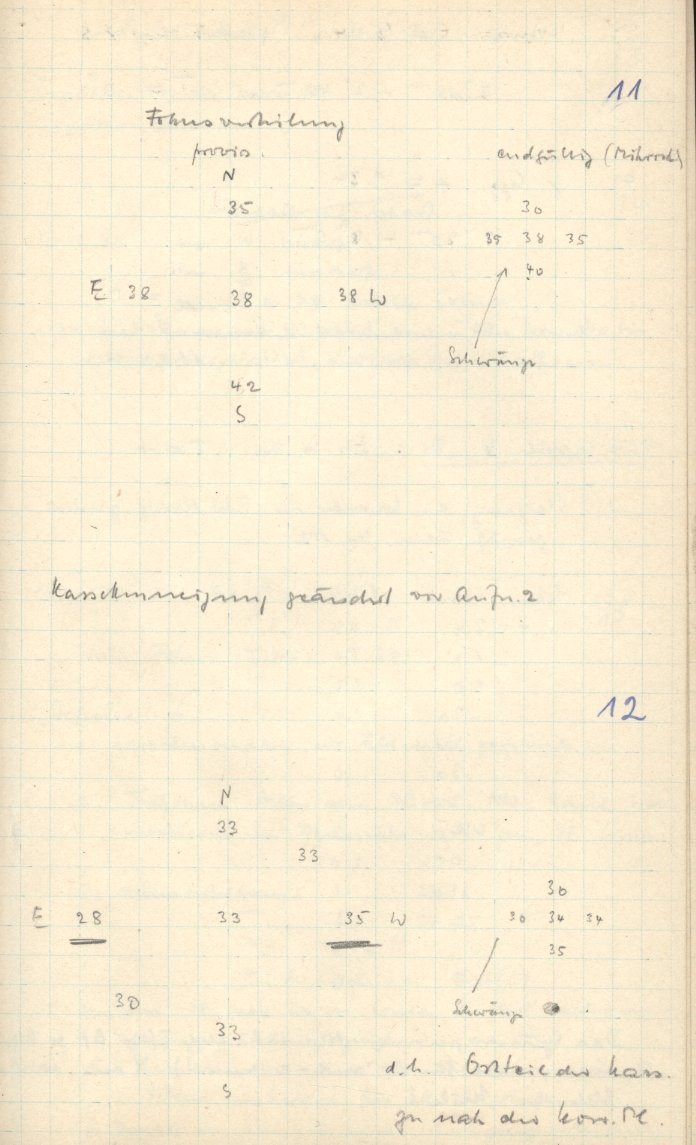 11
Fokusverteilung
provis. endgültig (Mikrosk)
N
35 30
39 38 35
40
E 38 38 38 W
Schwänze
42
S
Kassettenneigung geändert vor Aufn. 2
12
N
33
33
30
E 28 33 35 W 30 34 34
35
30
Schwänze
33
d.h. Ostteil der Kass.
S
zu nah der Korr. Pl.